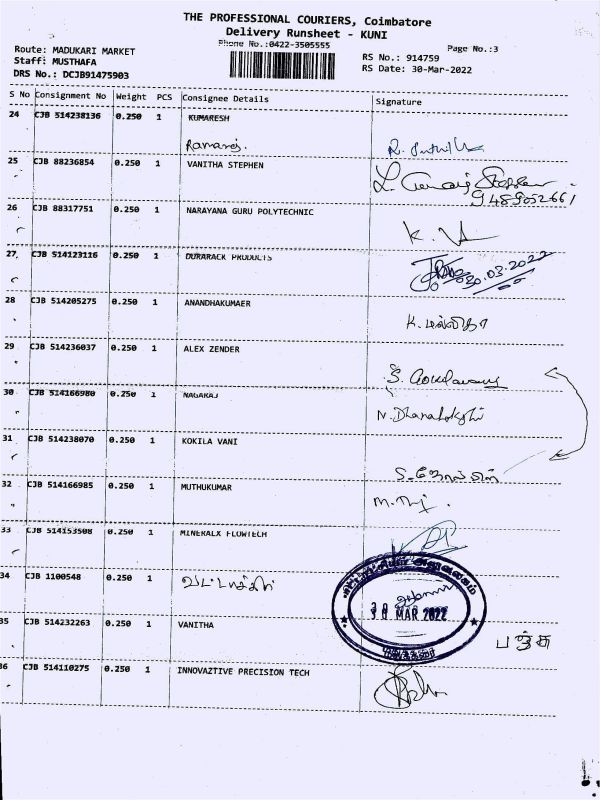 THE PROFESSIONAL COURIERS, Coimbatore
Delivery Runsheet - KUNI
Phone No.:0422-3505555
Page No.:3
Route: MADUKARI MARKET
Staff: MUSTHAFA
DRS No.: DCJB91475903
RS No.: 914759
RS Date: 30-Mar-2022
S No Consignment No Weight PCS Consignee Details Signature
24 CJB 514238136 0.250 1 KUMARESH
25 CJB 88236854 0.250 1 VANITHA STEPHEN
9489052661
26 CJB 88317751 0.250 1 NARAYANA GURU POLYTECHNIC
27 CJB 514123116 0.250 1 DURARACK PRODUCTS
30.03.2022
28 CJB 514205275 0.250 1 ANANDHAKUMAER
29 CJB 514236037 0.250 1 ALEX ZENDER
30 CJB 514166980 0.250 1 NAGARAJ
N. Dhanalakshi
31 CJB 514238070 0.250 1 KOKILA VANI
32 CJB 514166985 0.250 1 MUTHUKUMAR
33 CJB 514153508 0.250 1 MINERALX FLOWTECH
34 CJB 1100548 0.250 1
30 MAR 2022
35 CJB 514232263 0.250 1 VANITHA
36 CJB 514110275 0.250 1 INNOVAZTIVE PRECISION TECH